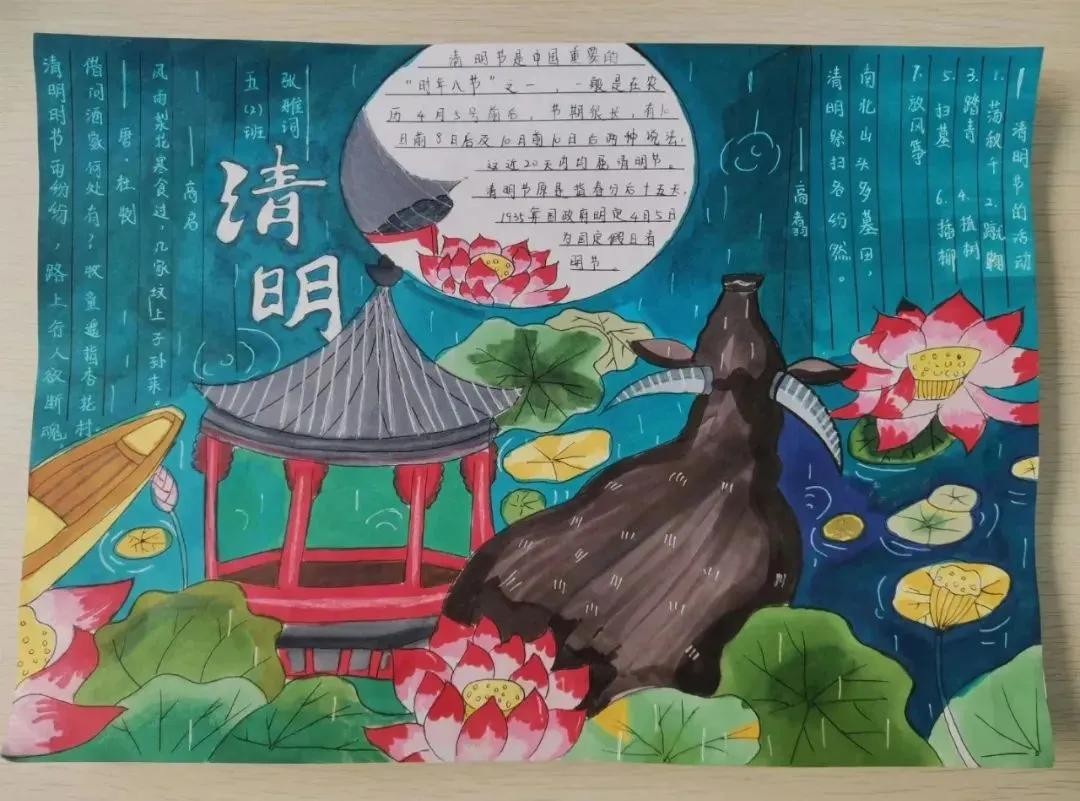 清明节的活动
1. 荡秋千 2. 蹴鞠
3. 踏青 4. 植树
5. 扫墓 6. 插柳
7. 放风筝
南北山头多墓田,
清明祭扫各纷然。
——高翥
清明节是中国重要的
“时年八节”之一,一般是在农
历4月5号前后,节期很长,有10
日前8日后及10日前10日后两种说法,
这近20天内均属清明节。
清明节原是指春分后十五天,
1935年国政府明定4月5日
为国定假日青
明节。
清明
张雅词
五(2)班
——高启
风雨梨花寒食过,几家坟上子孙来。
——唐·杜牧
借问酒家何处有?牧童遥指杏花村.
清明时节雨纷纷,路上行人欲断魂